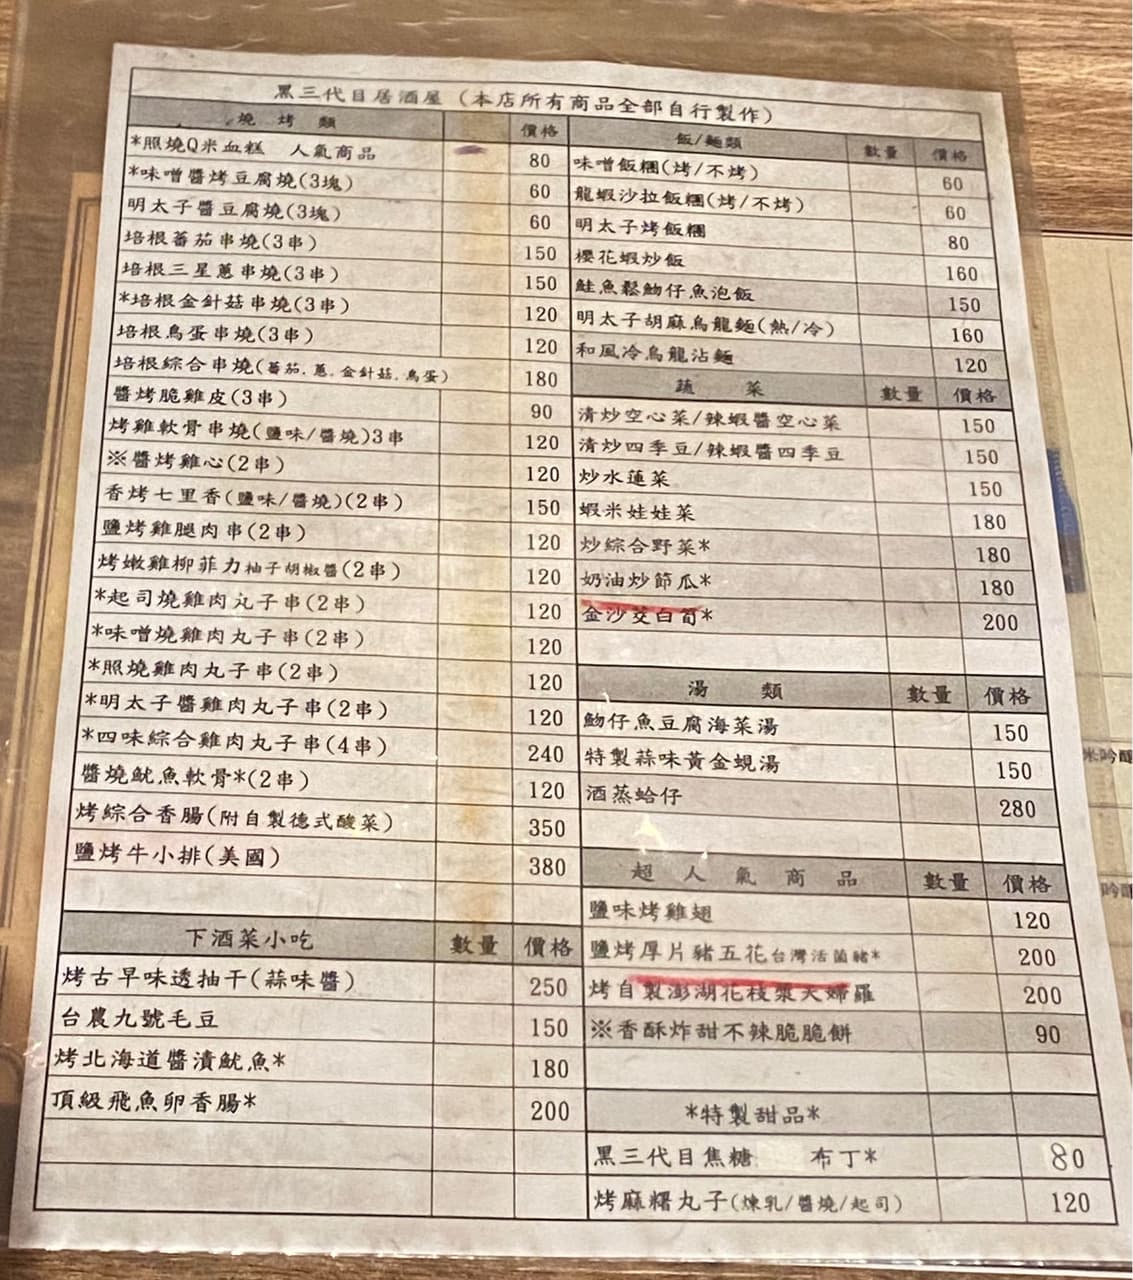 黑三代目居酒屋(本店所有商品全部自行製作)
燒烤類 價格
*照燒Q米血糕 人氣商品 80
*味噌醬烤豆腐燒(3塊) 60
明太子醬豆腐燒(3塊) 60
培根蕃茄串燒(3串) 150
培根三星蔥串燒(3串) 150
*培根金針菇串燒(3串) 120
培根鳥蛋串燒(3串) 120
培根綜合串燒(蕃茄.蔥.金針菇.鳥蛋) 180
醬烤脆雞皮(3串) 90
烤雞軟骨串燒(鹽味/醬燒)3串 120
※醬烤雞心(2串) 120
香烤七里香(鹽味/醬燒)(2串) 150
鹽烤雞腿肉串(2串) 120
烤嫩雞柳菲力柚子胡椒醬(2串) 120
*起司燒雞肉丸子串(2串) 120
*味噌燒雞肉丸子串(2串) 120
*照燒雞肉丸子串(2串) 120
*明太子醬雞肉丸子串(2串) 120
*四味綜合雞肉丸子串(4串) 240
醬燒魷魚軟骨*(2串) 120
烤綜合香腸(附自製德式酸菜) 350
鹽烤牛小排(美國) 380
下酒菜小吃 數量 價格
烤古早味透抽干(蒜味醬) 250
台農九號毛豆 150
烤北海道醬漬魷魚* 180
頂級飛魚卵香腸* 200
飯/麵類 數量 價格
味噌飯糰(烤/不烤) 60
龍蝦沙拉飯糰(烤/不烤) 60
明太子烤飯糰 80
櫻花蝦炒飯 160
鮭魚鬆魩仔魚泡飯 150
明太子胡麻烏龍麵(熱/冷) 160
和風冷烏龍沾麵 120
蔬菜 數量 價格
清炒空心菜/辣蝦醬空心菜 150
清炒四季豆/辣蝦醬四季豆 150
炒水蓮菜 150
蝦米娃娃菜 180
炒綜合野菜* 180
奶油炒節瓜* 180
金沙茭白筍* 200
湯類 數量 價格
魩仔魚豆腐海菜湯 150
特製蒜味黃金蜆湯 150
酒蒸蛤仔 280
超人氣商品 數量 價格
鹽味烤雞翅 120
鹽烤厚片豬五花台灣活菌豬* 200
烤自製澎湖花枝漿天婦羅 200
※香酥炸甜不辣脆脆餅 90
*特製甜品*
黑三代目焦糖 布丁* 80
烤麻糬丸子(煉乳/醬燒/起司) 120
米吟釀
吟釀